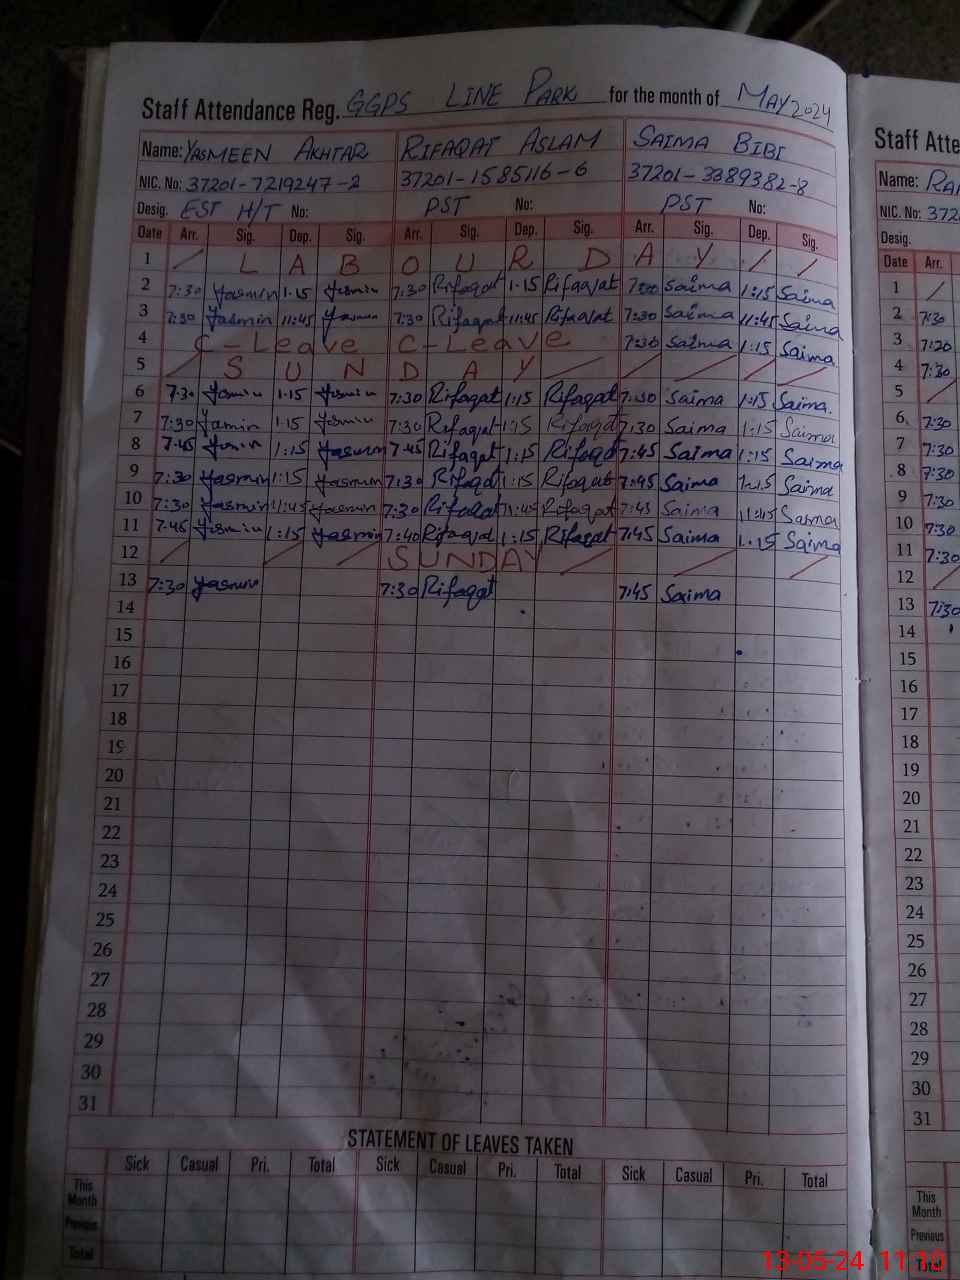 Staff Attendance Reg. GGPS LINE PARK for the month of MAY 2024
Name: YASMEEN AKHTAR RIFAQAT ASLAM SAIMA BIBI
NIC. No: 37201-7219247-2 37201-1585116-6 37201-3389382-8
Desig. EST H/T No: PST No: PST No:
Date Arr. Sig. Dep. Sig. Arr. Sig. Dep. Sig. Arr. Sig. Dep. Sig.
1 / L A B O U R D A Y / /
2 7:30 Yasmin 1.15 Yasmin 7:30 Rifaqat 1.15 Rifaqat Saima 1:15 Saima
3 7:30 Yasmin 11:45 Yasmin 7:30 Rifaqat 11:45 Rifaqat 7:30 Saima 11:45 Saima
4 C-Leave C-Leave 7:30 Saima 1:15 Saima
5 / S U N D A Y / / / / / /
6 7.30 Yasmin 1.15 Yasmin 7:30 Rifaqat 1:15 Rifaqat 7:30 Saima 1:15 Saima.
7 7:30 Yasmin 1.15 Yasmin 7:30 Rifaqat 1:15 Rifaqat 7:30 Saima 1:15 Saima
8 7.45 Yasmin 1:15 Yasmin 7.45 Rifaqat 1:15 Rifaqat 7:45 Saima 1:15 Saima
9 7:30 Yasmin 1:15 Yasmin 7:30 Rifaqat 1:15 Rifaqat 7:45 Saima 1:15 Saima
10 7:30 Yasmin 11:45 Yasmin 7:30 Rifaqat 11:45 Rifaqat 7:45 Saima 11:45 Saima
11 7.45 Yasmin 1:15 Yasmin 7:40 Rifaqat 1:15 Rifaqat 7:45 Saima 1.15 Saima
12 / / / SUNDAY / / /
13 7:30 Yasmin 7:30 Rifaqat 7:45 Saima
14
15
16
17
18
19
20
21
22
23
24
25
26
27
28
29
30
31
STATEMENT OF LEAVES TAKEN
Sick Casual Pri. Total Sick Casual Pri. Total Sick Casual Pri. Total
This Month
Previous
Total
Staff Atte
Name: RA
NIC. No: 372
Desig.
Date Arr.
1 /
2 7:30
3 7:20
4 7:30
5 /
6 7:30
7 7:30
8 7:30
9 7:30
10 7:30
11 7:30
12 /
13 7:30
14
15
16
17
18
19
20
21
22
23
24
25
26
27
28
29
30
31
This Month
Previous
Total
13-05-24 11:10